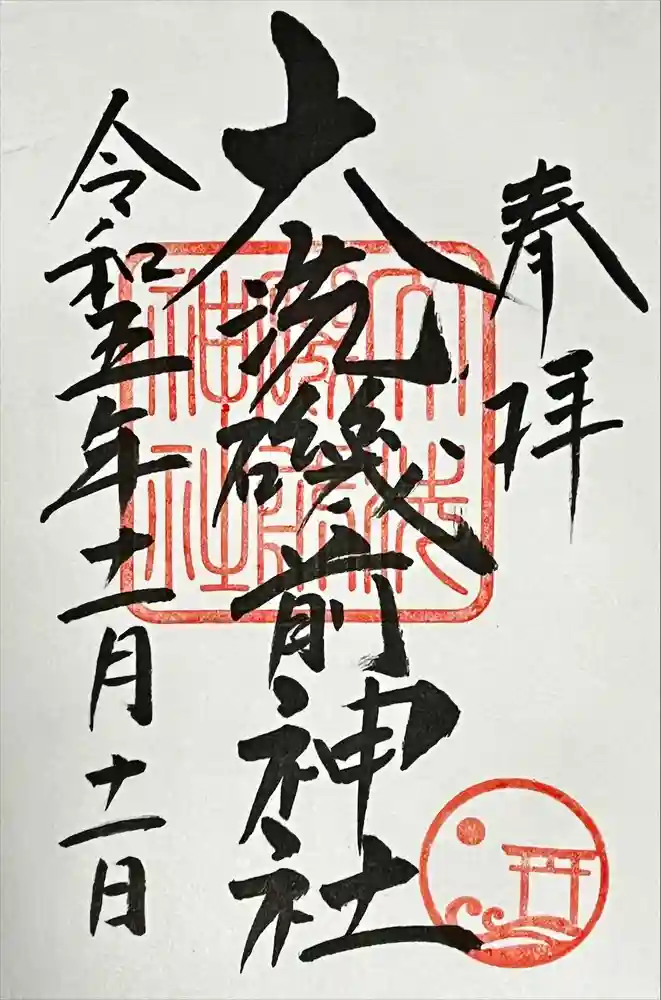 奉拝
大洗磯前神社
令和五年十一月十一日
大洗
磯前
神社